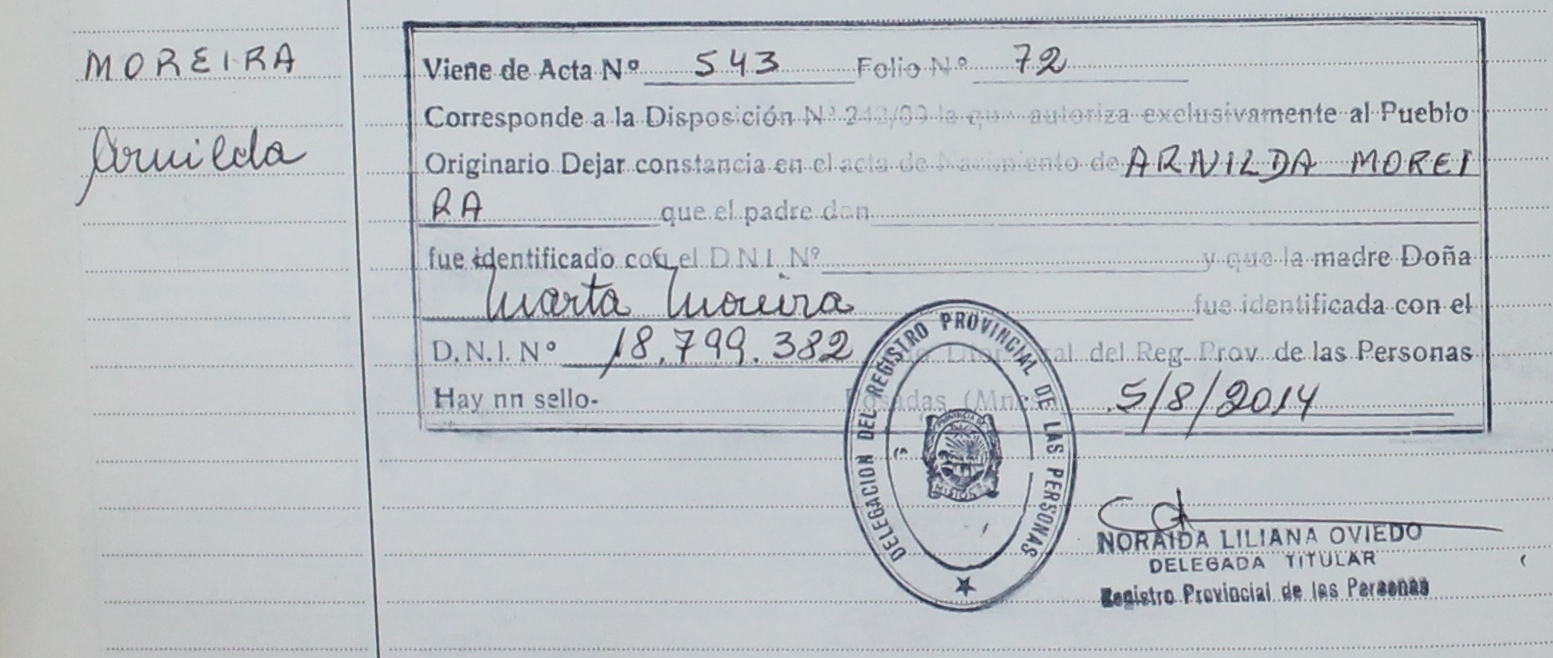 MOREIRA
Arnilda
Viene de Acta Nº 543 Folio Nº 72
Corresponde a la Disposición Nº 242/09 la que autoriza exclusivamente al Pueblo
Originario Dejar constancia en el acta de Nacimiento de ARNILDA MOREI
RA que el padre don
fue identificado con el D.N.I. Nº y que la madre Doña
Marta Moreira fue identificada con el
D.N.I. Nº 18.799.382 del Reg. Prov. de las Personas
Hay nn sello- Posadas (Mnes 5/8/2014
DELEGACION DEL REGISTRO PROVINCIAL DE LAS PERSONAS
PROVINCIA DE
MISIONES
NORAIDA LILIANA OVIEDO
DELEGADA TITULAR
Registro Provincial de las Personas